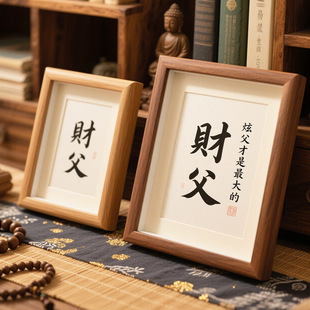 財父
財父
炫父才是最大的